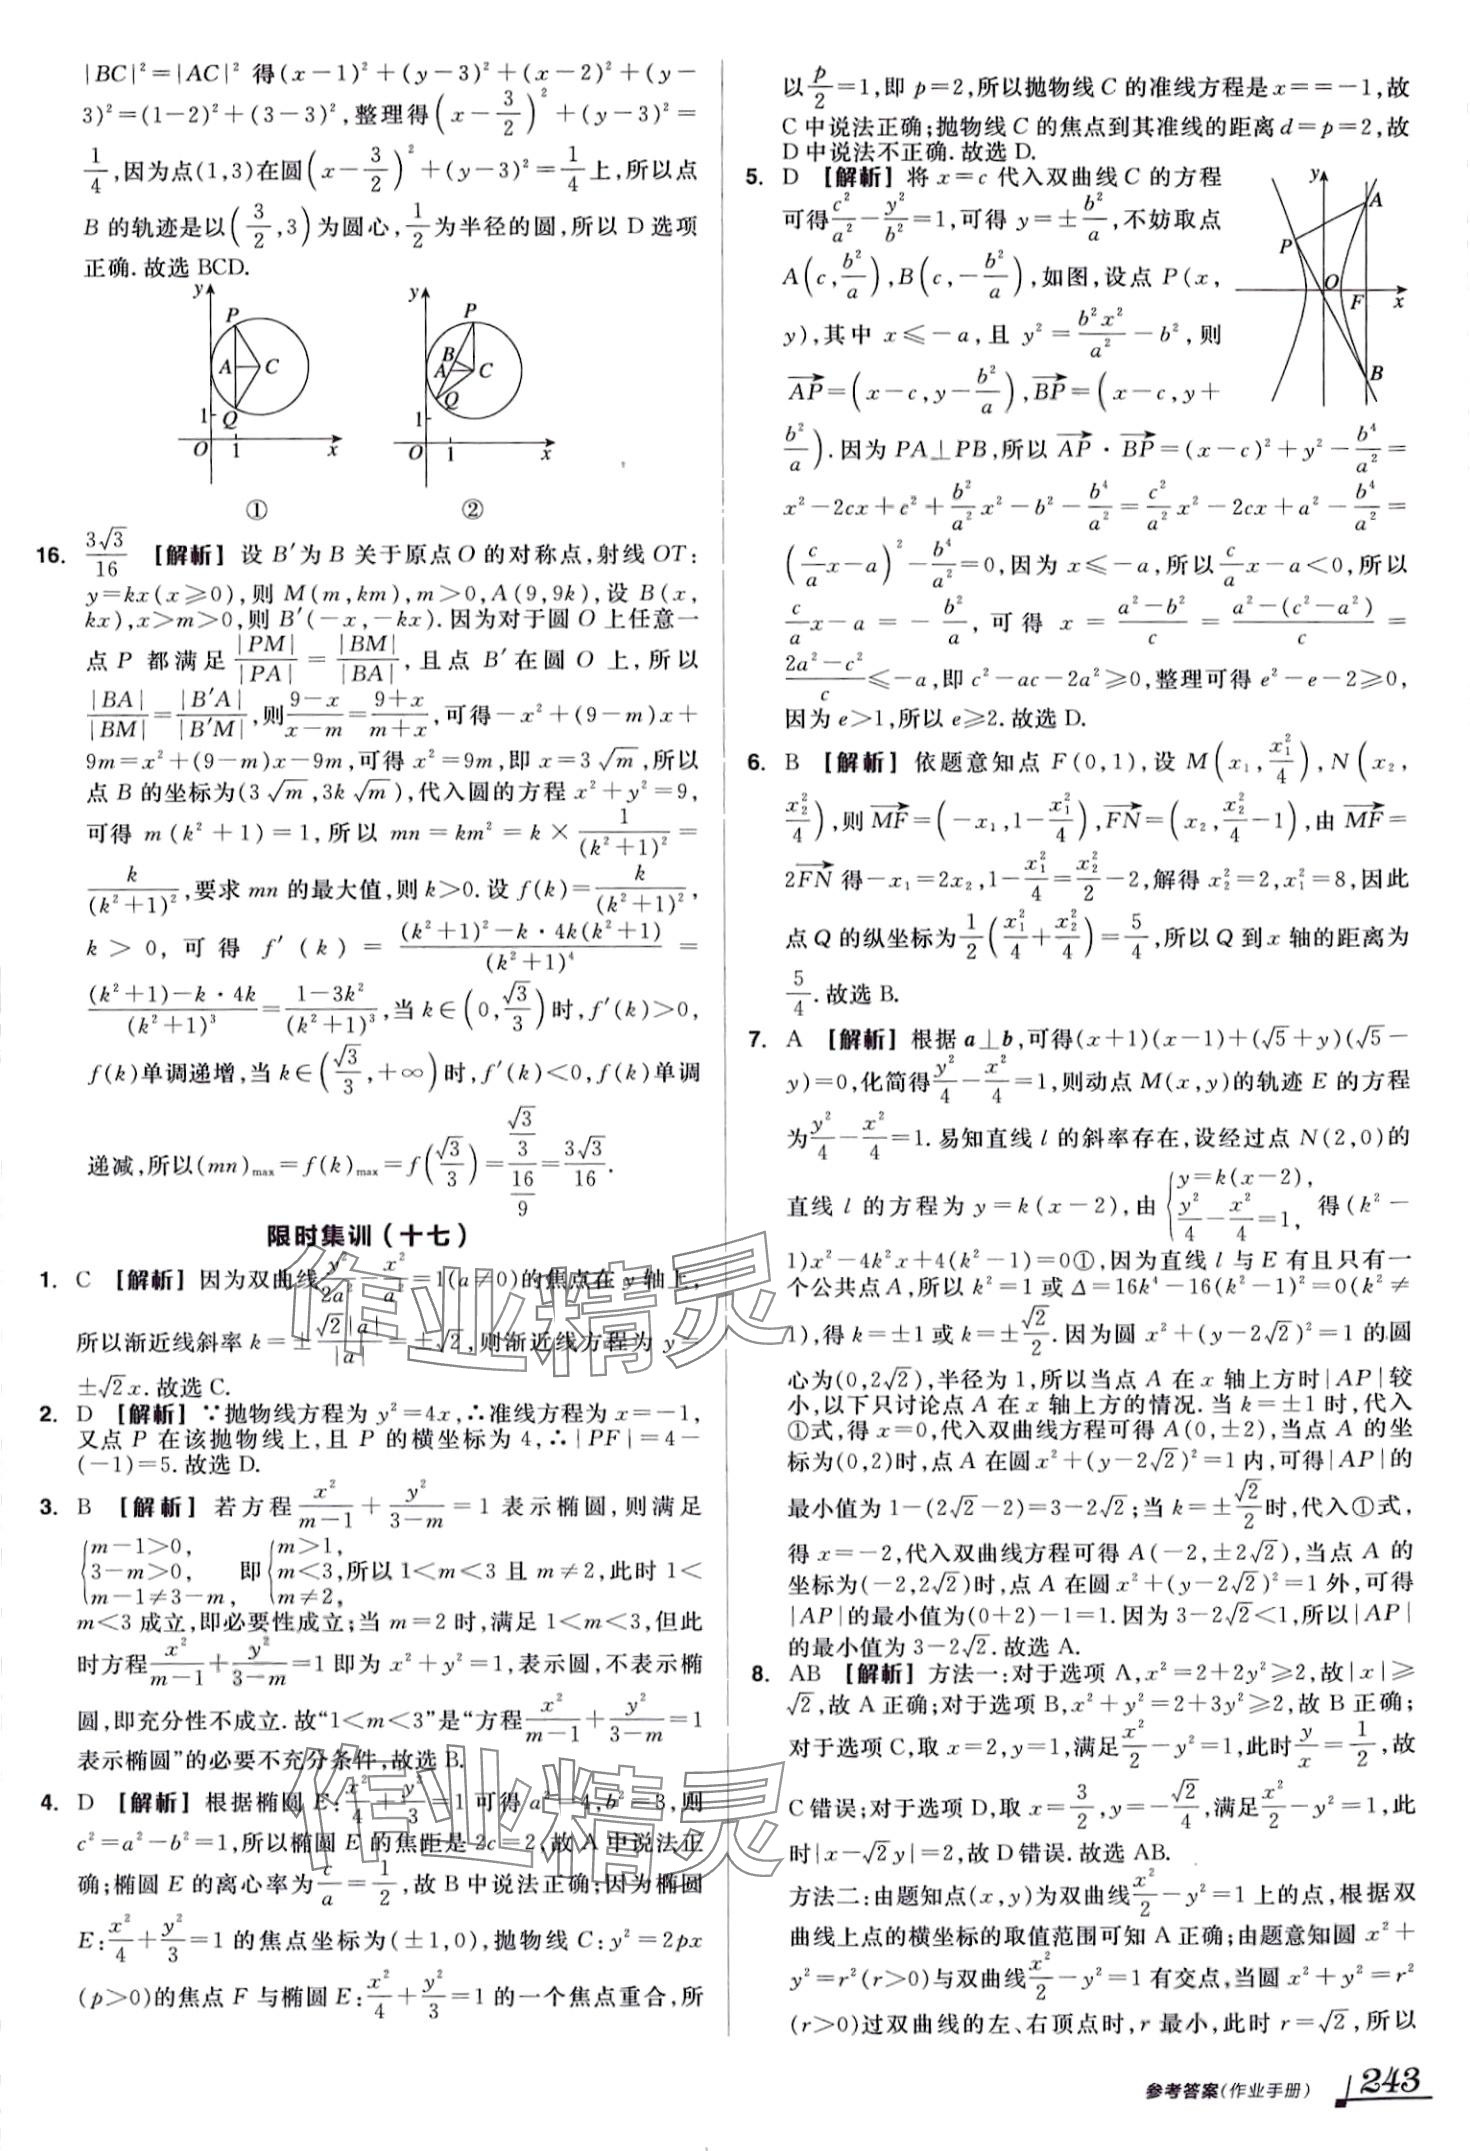 |BC|²=|AC|² 得(x-1)²+(y-3)²+(x-2)²+(y-
3)²=(1-2)²+(3-3)²,整理得(x-3/2)²+(y-3)²=
1/4,因为点(1,3)在圆(x-3/2)²+(y-3)²=1/4上,所以点
B 的轨迹是以(3/2,3)为圆心,1/2为半径的圆,所以 D 选项
正确.故选 BCD.
y P A C Q 1 O 1 x
y P B A C Q 1 O 1 x
① ②
16. 3√3/16 【解析】设 B′为 B 关于原点 O 的对称点,射线 OT:
y=kx(x≥0),则 M(m,km),m>0,A(9,9k),设 B(x,
kx),x>m>0,则 B′(-x,-kx).因为对于圆 O 上任意一
点 P 都满足|PM|/|PA|=|BM|/|BA|,且点 B′在圆 O 上,所以
|BA|/|BM|=|B′A|/|B′M|,则(9-x)/(x-m)=(9+x)/(m+x),可得-x²+(9-m)x+
9m=x²+(9-m)x-9m,可得 x²=9m,即 x=3√m,所以
点 B 的坐标为(3√m,3k√m),代入圆的方程 x²+y²=9,
可得 m(k²+1)=1,所以 mn=km²=k×1/(k²+1)²=
k/(k²+1)²,要求 mn 的最大值,则 k>0.设 f(k)=k/(k²+1)²,
k>0,可得 f′(k)=((k²+1)²-k·4k(k²+1))/(k²+1)⁴=
((k²+1)-k·4k)/(k²+1)³=(1-3k²)/(k²+1)³,当 k∈(0,√3/3)时,f′(k)>0,
f(k)单调递增,当 k∈(√3/3,+∞)时,f′(k)<0,f(k)单调
递减,所以(mn)max=f(k)max=f(√3/3)=(√3/3)/(16/9)=3√3/16.
限时集训(十七)
1. C 【解析】因为双曲线y²/2a²-x²/a²=1(a≠0)的焦点在 y 轴上,
所以渐近线斜率 k=±√2|a|/|a|=±√2,则渐近线方程为 y=
±√2x.故选 C.
2. D 【解析】∵抛物线方程为 y²=4x,∴准线方程为 x=-1,
又点 P 在该抛物线上,且 P 的横坐标为 4,∴|PF|=4-
(-1)=5.故选 D.
3. B 【解析】若方程x²/(m-1)+y²/(3-m)=1 表示椭圆,则满足
{m-1>0, 3-m>0, m-1≠3-m, 即{m>1, m<3, m≠2, 所以 1<m<3 且 m≠2,此时 1<
m<3 成立,即必要性成立;当 m=2 时,满足 1<m<3,但此
时方程x²/(m-1)+y²/(3-m)=1 即为 x²+y²=1,表示圆,不表示椭
圆,即充分性不成立.故“1<m<3”是“方程x²/(m-1)+y²/(3-m)=1
表示椭圆”的必要不充分条件,故选 B.
4. D 【解析】根据椭圆 E:x²/4+y²/3=1 可得 a²=4,b²=3,则
c²=a²-b²=1,所以椭圆 E 的焦距是 2c=2,故 A 中说法正
确;椭圆 E 的离心率为c/a=1/2,故 B 中说法正确;因为椭圆
E:x²/4+y²/3=1 的焦点坐标为(±1,0),抛物线 C:y²=2px
(p>0)的焦点 F 与椭圆 E:x²/4+y²/3=1 的一个焦点重合,所
以p/2=1,即 p=2,所以抛物线 C 的准线方程是 x==-1,故
C 中说法正确;抛物线 C 的焦点到其准线的距离 d=p=2,故
D 中说法不正确.故选 D.
5. D 【解析】将 x=c 代入双曲线 C 的方程
可得c²/a²-y²/b²=1,可得 y=±b²/a,不妨取点
A(c,b²/a),B(c,-b²/a),如图,设点 P(x,
y),其中 x≤-a,且 y²=b²x²/a²-b²,则
AP→=(x-c,y-b²/a),BP→=(x-c,y+
y A P O F x B
b²/a).因为 PA⊥PB,所以 AP→·BP→=(x-c)²+y²-b⁴/a²=
x²-2cx+c²+b²/a²x²-b²-b⁴/a²=c²/a²x²-2cx+a²-b⁴/a²=
(c/a x-a)²-b⁴/a²=0,因为 x≤-a,所以c/a x-a<0,所以
c/a x-a=-b²/a,可得 x=(a²-b²)/c=(a²-(c²-a²))/c=
(2a²-c²)/c≤-a,即 c²-ac-2a²≥0,整理可得 e²-e-2≥0,
因为 e>1,所以 e≥2.故选 D.
6. B 【解析】依题意知点 F(0,1),设 M(x₁,x₁²/4),N(x₂,
x₂²/4),则MF→=(-x₁,1-x₁²/4),FN→=(x₂,x₂²/4-1),由MF→=
2FN→得-x₁=2x₂,1-x₁²/4=x₂²/2-2,解得 x₂²=2,x₁²=8,因此
点 Q 的纵坐标为1/2(x₁²/4+x₂²/4)=5/4,所以 Q 到 x 轴的距离为
5/4.故选 B.
7. A 【解析】根据 a⊥b,可得(x+1)(x-1)+(√5+y)(√5-
y)=0,化简得y²/4-x²/4=1,则动点 M(x,y)的轨迹 E 的方程
为y²/4-x²/4=1.易知直线 l 的斜率存在,设经过点 N(2,0)的
直线 l 的方程为 y=k(x-2),由{y=k(x-2), y²/4-x²/4=1, 得(k²-
1)x²-4k²x+4(k²-1)=0①,因为直线 l 与 E 有且只有一
个公共点 A,所以 k²=1 或 Δ=16k⁴-16(k²-1)²=0(k²≠
1),得 k=±1 或 k=±√2/2.因为圆 x²+(y-2√2)²=1 的圆
心为(0,2√2),半径为 1,所以当点 A 在 x 轴上方时|AP|较
小,以下只讨论点 A 在 x 轴上方的情况.当 k=±1 时,代入
①式,得 x=0,代入双曲线方程可得 A(0,±2),当点 A 的坐
标为(0,2)时,点 A 在圆 x²+(y-2√2)²=1 内,可得|AP|的
最小值为 1-(2√2-2)=3-2√2;当 k=±√2/2时,代入①式,
得 x=-2,代入双曲线方程可得 A(-2,±2√2),当点 A 的
坐标为(-2,2√2)时,点 A 在圆 x²+(y-2√2)²=1 外,可得
|AP|的最小值为(0+2)-1=1.因为 3-2√2<1,所以|AP|
的最小值为 3-2√2.故选 A.
8. AB 【解析】方法一:对于选项 A,x²=2+2y²≥2,故|x|≥
√2,故 A 正确;对于选项 B,x²+y²=2+3y²≥2,故 B 正确;
对于选项 C,取 x=2,y=1,满足x²/2-y²=1,此时y/x=1/2,故
C 错误;对于选项 D,取 x=3/2,y=-√2/4,满足x²/2-y²=1,此
时|x-√2y|=2,故 D 错误.故选 AB.
方法二:由题知点(x,y)为双曲线x²/2-y²=1 上的点,根据双
曲线上点的横坐标的取值范围可知 A 正确;由题意知圆 x²+
y²=r²(r>0)与双曲线x²/2-y²=1 有交点,当圆 x²+y²=r²
(r>0)过双曲线的左、右顶点时,r 最小,此时 r=√2,所以
作业精灵
作业精灵
参考答案(作业手册) 243